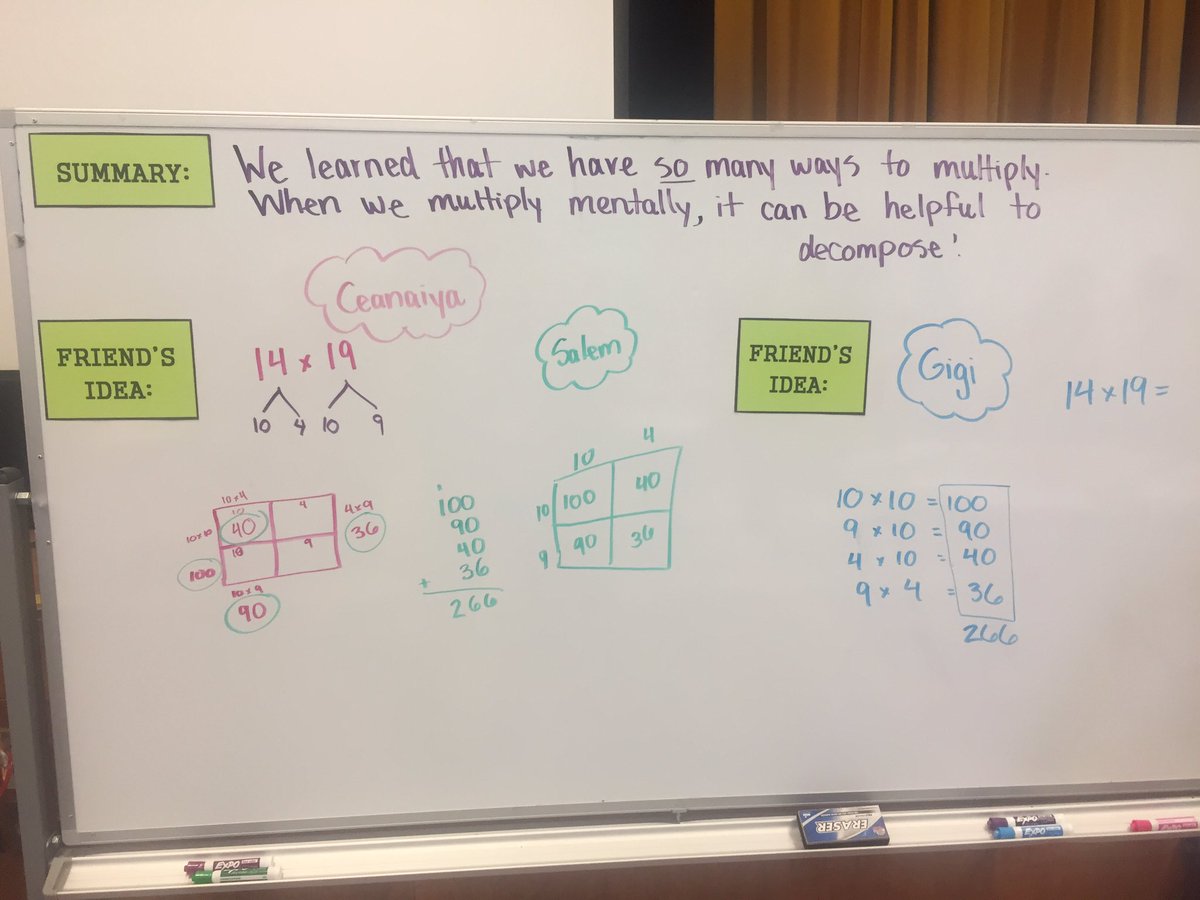 SUMMARY:
We learned that we have so many ways to multiply.
When we multiply mentally, it can be helpful to
decompose!
FRIEND'S
IDEA:
Ceanaiya
14 x 19
10 4 10 9
10x4
10x10
10
40
4
4x9
36
100
10
9
10x9
90
100
90
40
+ 36
266
Salem
10 4
10 100 40
9 90 36
FRIEND'S
IDEA:
Gigi
14 x 19 =
10 x 10 = 100
9 x 10 = 90
4 x 10 = 40
9 x 4 = 36
266
ERASER
EXPO
EXPO
EXPO
EXPO